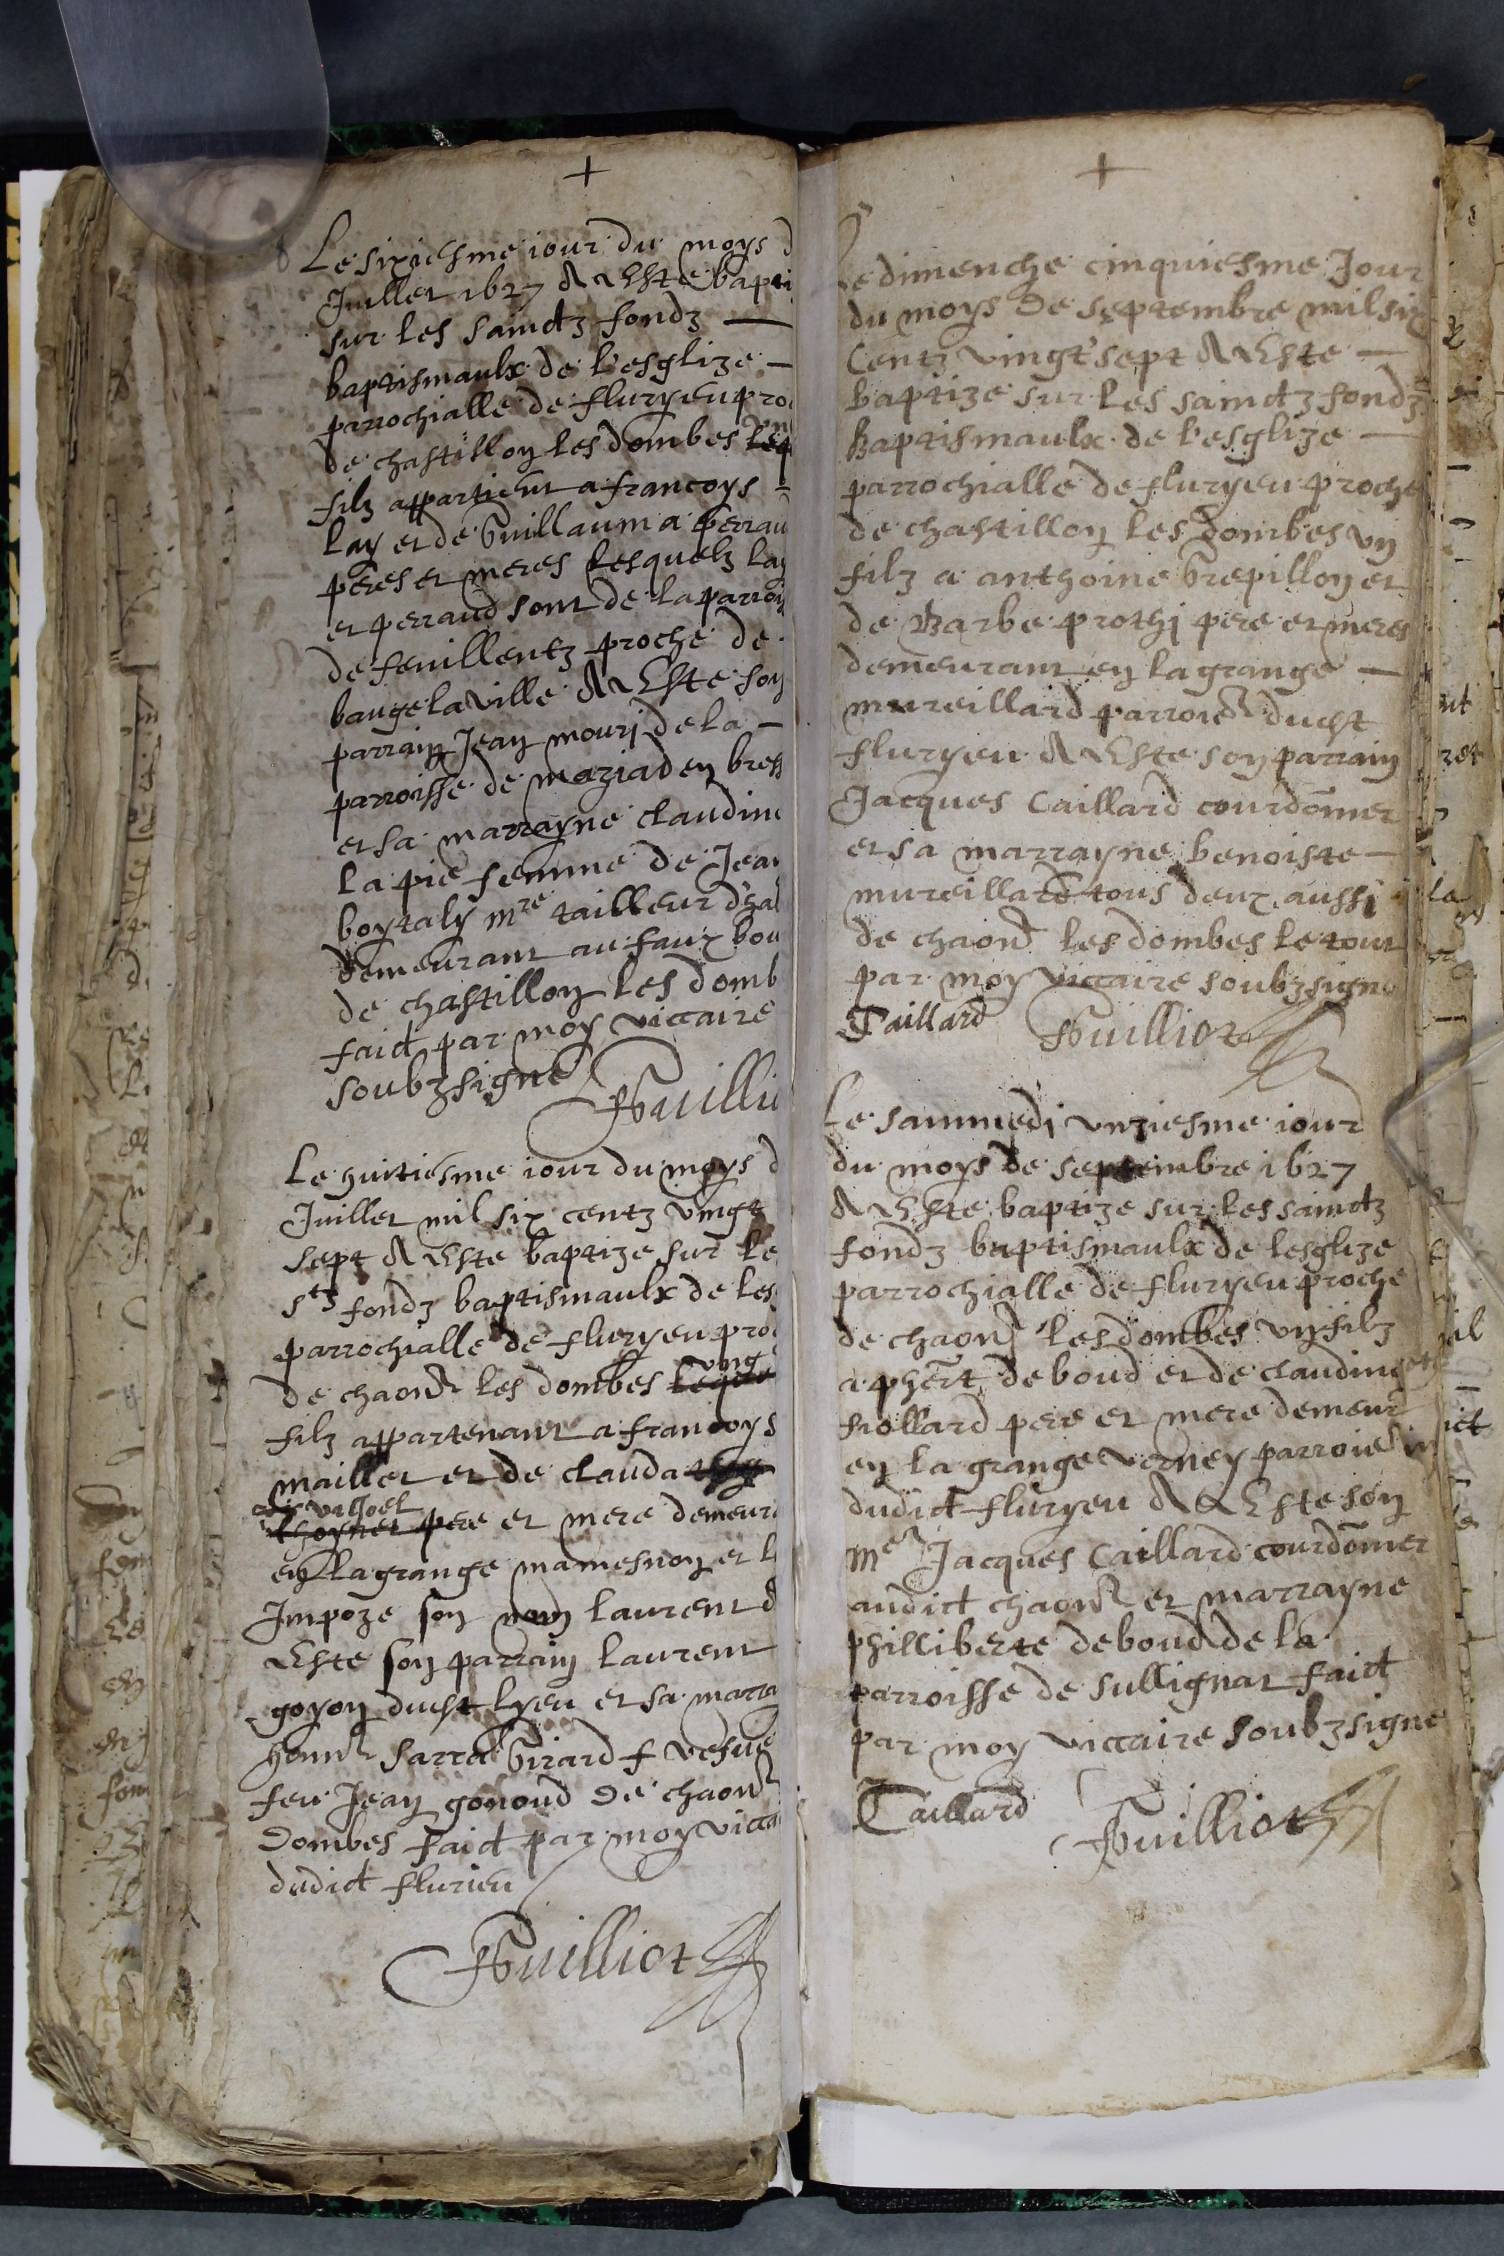 +
Le sixiesme iour du moys d
Juillet 1627 A Esté bapti
sur les sainctz fondz —
baptismaulx de l'esglize —
parrochialle de fluryeu pro
de chastillon les dombes
filz appartient a francoys
lay et de Guillauma perrau
peres et meres lesquelz lay
et perraud sont de la parroi
de feuillentz proche de
bauge la ville A Esté son
parrain Jean mouri de la —
parroisse de maziad en bress
et sa marrayne claudine
la pie femme de Jean
boytaly mre tailleur d'ha
demeurant au faux bou
de chastillon les domb
faict par moy viccaire
soubzsigné
Guillio
Le huitiesme iour du moys d
Juillet mil six centz vingt
sept A Esté baptize sur le
stz fondz baptismaulx de les
parrochialle de flueryeu pro
de chaon les dombes ung
filz appartenant a francoys
mailler et de clauda
thoynet pere et mere demeur
en la grange mamesnon et l
Impoze son nom laurent d
Esté son parrain laurent
goyon dudt lyeu et sa marra
honn sarra Girard f vefue
feu Jean gonoud de chaon
Dombes faict par moy vicca
dudict flurieu
Guilliot
+
Le dimenche cinquiesme Jour
du moys de septembre mil six
Centz vingt sept A Esté —
Baptize sur les sainctz fondz
Baptismaulx de l'esglize —
parrochialle de fluryeu proche
de chastillon les dombes un
filz a anthoine Grepillon et
de Barbe prothi pere et meres
demeurant en la grange —
mureillard parroi dudt
fluryeu A Esté son parrain
Jacques Caillard courdonner
et sa marrayne benoiste —
mureillard tous deux aussi
de chaon les dombes le tout
par moy viccaire soubzsigne
Caillard Guilliot
Le sammedi unziesme iour
du moys de septembre 1627
A Esté baptize sur les sainctz
fondz baptismaulx de lesglize
parrochialle de fluryeu proche
de chaon les dombes un filz
a phert deboud et de claudine
fiollard pere et mere demeur
en la grange verney parroi
dudict fluryeu A Esté son
me Jacques Caillard courdonner
audict chaon et marrayne
philliberte deboud de la
parroisse de sullignat faict
par moy viccaire soubzsigne
Caillard
Guilliot